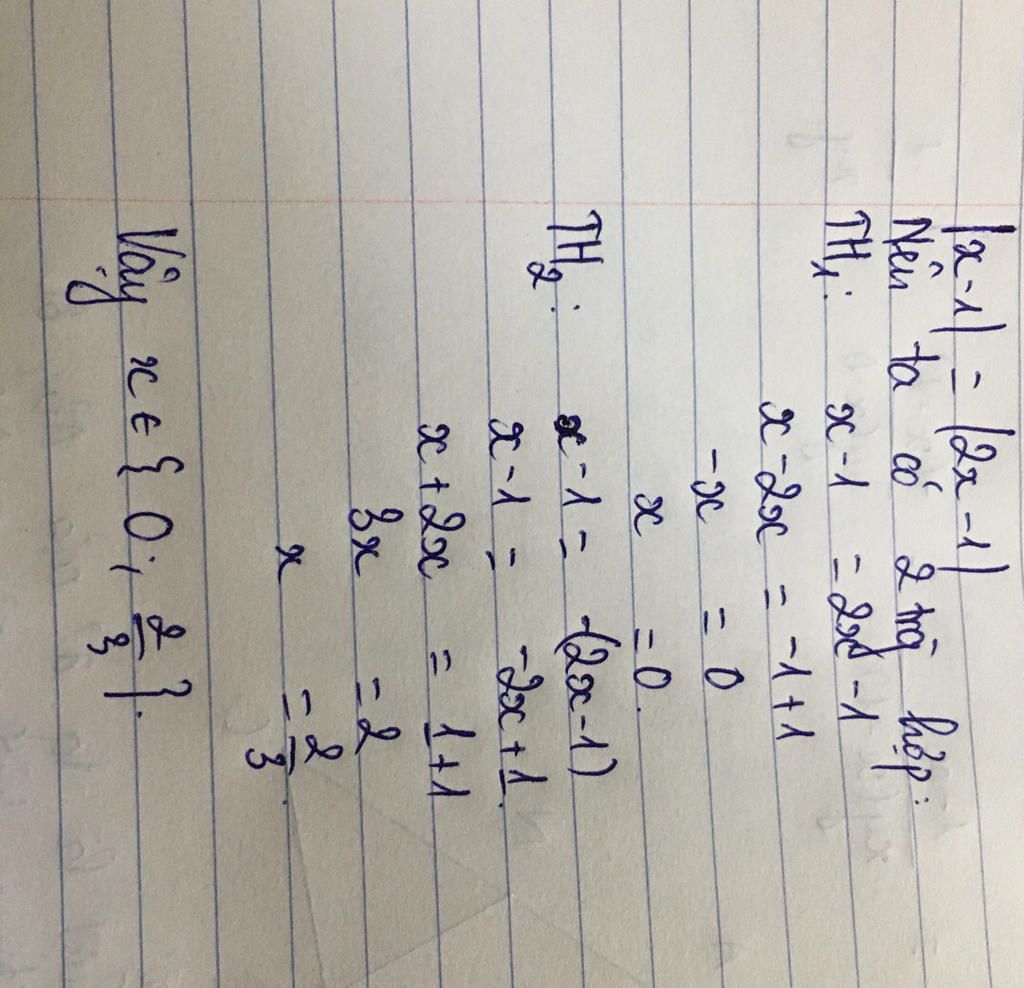 |x-1| = |2x-1|
Nên ta có 2 trg hợp:
TH1: x-1 = 2x-1
x-2x = -1+1
-x = 0
x = 0.
TH2: x-1 = -(2x-1)
x-1 = -2x+1.
x+2x = 1+1
3x = 2
x = 2/3.
Vậy x ∈ {0; 2/3}.